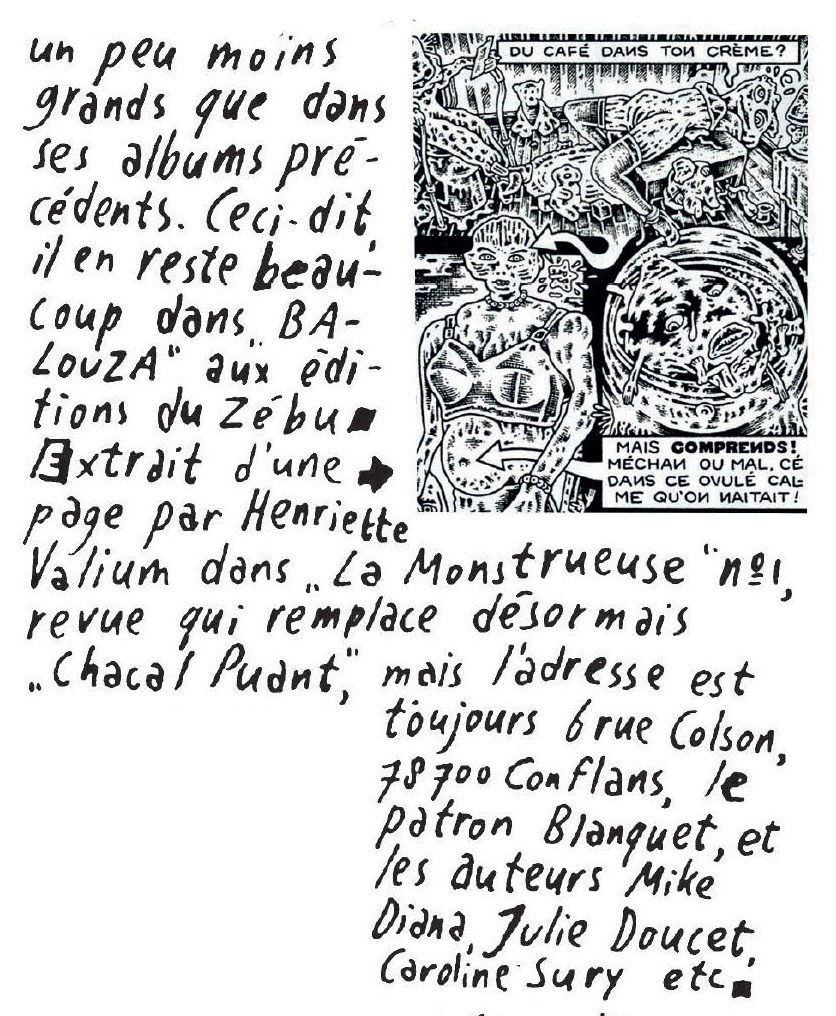 un peu moins
grands que dans
ses albums pré-
cédents. Ceci-dit,
il en reste beau-
coup dans „BA-
LOUZA" aux édi-
tions du Zébu
Extrait d'une
page par Henriette
Valium dans „La Monstrueuse" nº1,
revue qui remplace désormais
„Chacal Puant", mais l'adresse est
toujours 6 rue Colson,
78700 Conflans, le
patron Blanquet, et
les auteurs Mike
Diana, Julie Doucet,
Caroline Sury etc.
DU CAFÉ DANS TON CRÈME?
MAIS COMPRENDS!
MÉCHAN OU MAL, CÉ
DANS CE OVULÉ CAL-
ME QU'ON NAITAIT!